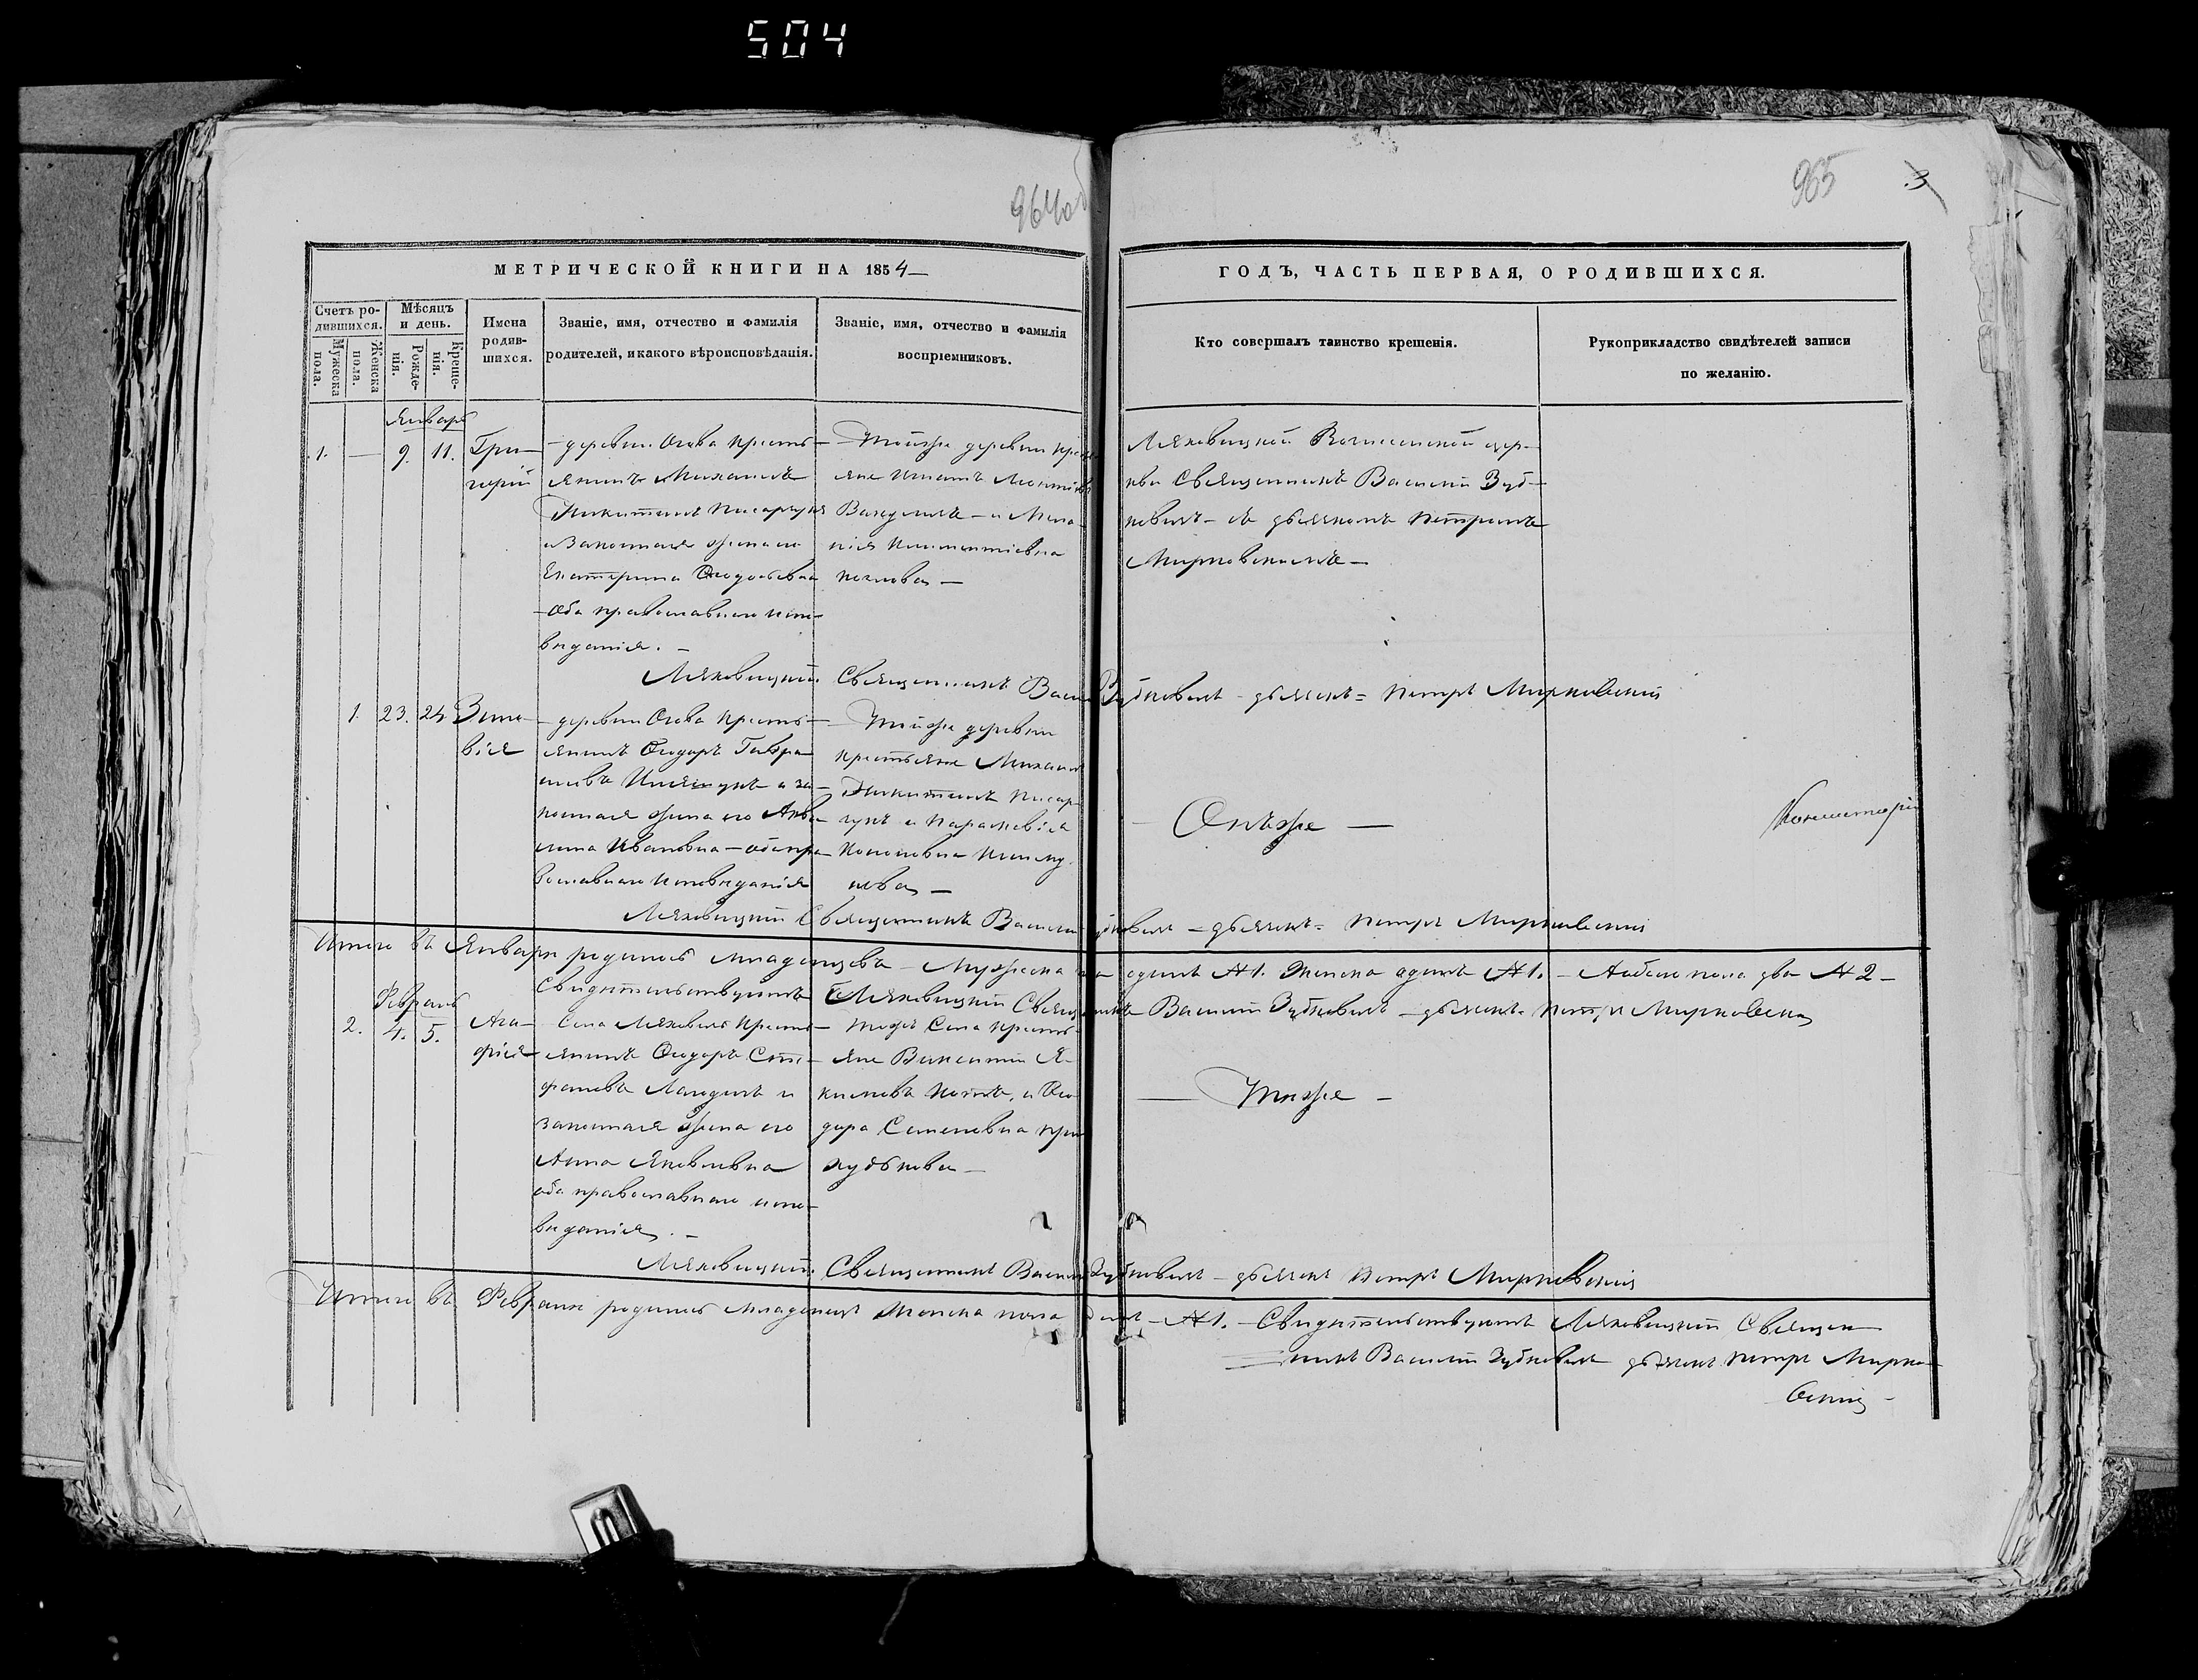 504
964об
965
3
МЕТРИЧЕСКОЙ КНИГИ НА 1854
ГОДЪ, ЧАСТЬ ПЕРВАЯ, О РОДИВШИХСЯ.
Счетъ ро-
дившихся.
Мужеска
пола.
Женска
пола.
Мѣсяцъ
и день.
Рожде-
нія.
Креще-
нія.
Имена
родив-
шихся.
Званіе, имя, отчество и фамилія
родителей, и какого вѣроисповѣданія.
Званіе, имя, отчество и фамилія
воспріемниковъ.
Кто совершалъ таинство крещенія.
Рукоприкладство свидѣтелей записи
по желанію.
Январь
1. — 9. 11.
Гри-
горій
деревни Огова крестъ-
янинъ Михаилъ
Никитинъ Писарчукъ
и Законная жена его
Екатерина Ѳеодосьевна
оба православнаго испо-
вѣданія. —
Тойже деревни
яне Игнатъ
— и Мела-
нія
Ляховицкой цер-
кви Священникъ Василій Зуб-
ковичъ — съ дьячкомъ Петромъ
Мирковскимъ —
Ляховицкій Священникъ Василій Зубковичъ — дьячекъ = Петръ Мирковскій
1. 23. 24
Зино-
вія
деревни Огова крестъ-
янинъ Ѳеодоръ Гаври-
иловъ и за-
конная жена его Аку-
лина Ивановна — оба пра-
вославнаго исповѣданія
Тойже деревни
крестьяне Михаилъ
Никитинъ Писар-
чукъ и Параскевія
Онъже —
Ляховицкій Священникъ Василій Зубковичъ = дьячекъ = Петръ Мирковскій
Итого въ Январѣ родилось младенцевъ — Мужеска пола одинъ №1. Женска одинъ №1. — Аобоего пола два №2 —
Свидѣтельствуютъ Ляховицкій Священникъ Василій Зубковичъ — дьячекъ Петръ Мирковскій
Февраль
2. 4. 5.
Ага-
фія
Села Ляховичъ крестъ-
янинъ Ѳеодоръ Сте-
фановъ и
законная жена его
Анна Яковлевна
оба православнаго испо-
вѣданія. —
Тогоже Села крестъ-
яне Викентій Я-
и Ѳео-
дора Семеновна
Тоже —
Ляховицкій Священникъ Василій Зубковичъ — дьячекъ Петръ Мирковскій
Итого въ Февралѣ родилось младенецъ Женска пола одинъ — №1. — Свидѣтельствуютъ Ляховицкій Священ-
никъ Василій Зубковичъ дьячекъ Петръ Мирко-
вскій —